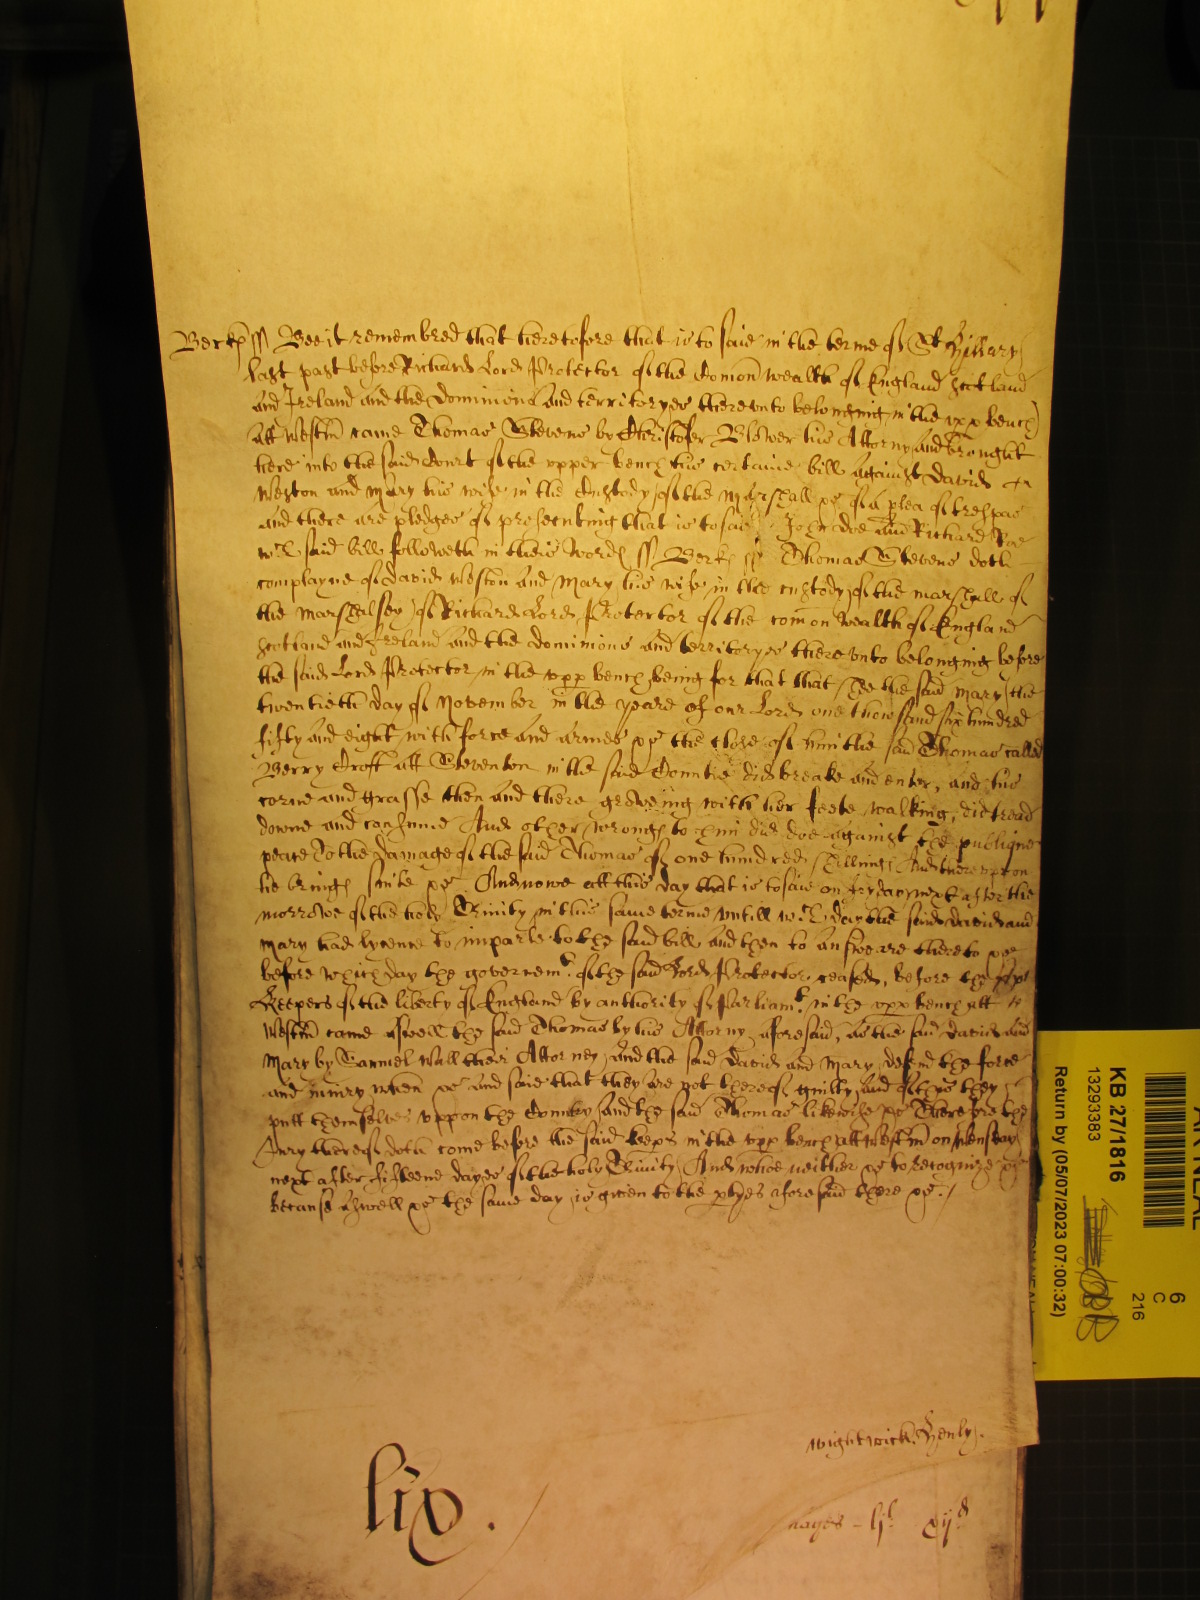 Berkꝭ ss Bee it remembred that heretofore that is to saie in the terme of St Hillary
last past before Richard Lord Protector of the Comon wealth of England Scotland
and Ireland and the Dominions and territoryes thereunto belonging in the upp bench
att Westm came Thomas Stevens by Christofer Blower his Attorny and brought
here into the said Court of the upper bench his certaine bill against David
Weston and Mary his wife in the Custody of the Marshall &c of a plea of trespas
and there are pledges of prosecuting that is to saie John Doe and Richard Roe
wch said bill followeth in theis words ss Berk ss Thomas Stevens doth
complayne of David Weston and Mary his wife in the custody of the marshall of
the Marshalsey of Richard Lord Protector of the comon wealth of England
Scotland and Ireland and the dominions and territoryes thereunto belonging before
the said Lord Protector in the upp bench being for that that shee the said Mary the
twentieth day of November in the yeare of our Lord one thowsand six hundred
fifty and eight with force and armes &c the close of him the said Thomas called
Berry Croft att Steventon in the said Countie did breake and enter, and his
corne and grasse then and there groweing with her feete walking, did tread
downe and consume And other wrongs to him did doe against the publique
peace To the damage of the said Thomas of one hundred shillings And thereuppon
he brings suite &c. And nowe att this day that is to saie on fryday next after the
morrowe of the holy Trinity in this same terme untill wch day the said David and
Mary had lycence to imparle to the said bill and then to answeare thereto &c
before which day the governemt of the said Lord Protector ceased, before the
Keepers of the liberty of England by authority of Parliamt in the upp bench att
Westm came aswell the said Thomas by his Attorny aforesaid, as the said David and
Mary by Samuel Wall their Attorney, And the said David and Mary defend the force
and iniury when &c and saie that they are not thereof guilty, and of this they
putt themselves uppon the Country, and the said Thomas likewise &c Therefore the
Jury thereof doth come before the said keeps in the upp bench att Westm on Wensday
next after fifteene dayes of the holy Trinity And whoe neither &c to recognize &c
because aswell &c the same day is given to the ptyes aforesaid there &c./
Wightwick. Henly.
lix.
hayes - ljl xijd
KB 27/1816
13293383
Return by (05/07/2023 07:00:32)
6
C
216